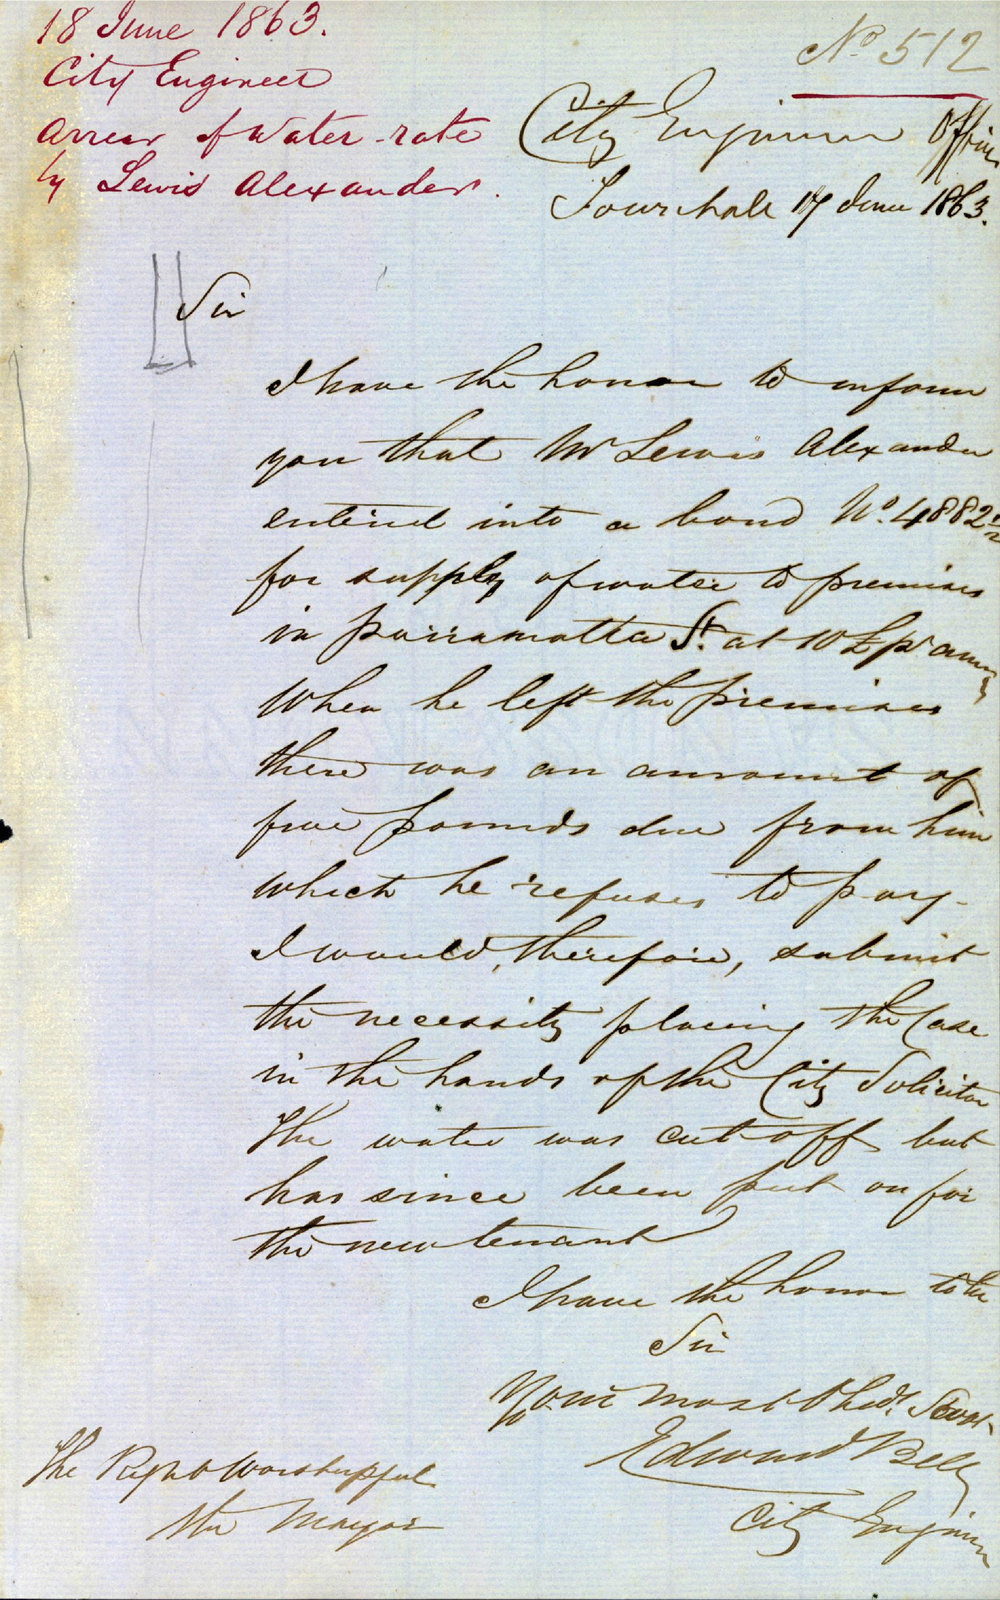 18 June 1863.
City Engineer
Arrear of Water-rate
by Lewis Alexander.
No 512
City Engineers Office
Townhall 17 June 1863.
Sir
I have the honor to inform
you that Mr Lewis Alexander
entered into a bond No. 4882 1/2
for supply of water to premises
in Parramatta St. at 10£ pr annum
When he left the premises
there was an amount of
five pounds due from him
which he refuses to pay.
I would, therefore, submit
the necessity placing the Case
in the hands of the City Solicitor
The water was cut off but
has since been put on for
the new tenant
I have the honor to be
Sir
Your most Obedt. Servt.
Edward Bell
City Engineer
The Right Worshipful
the Mayor